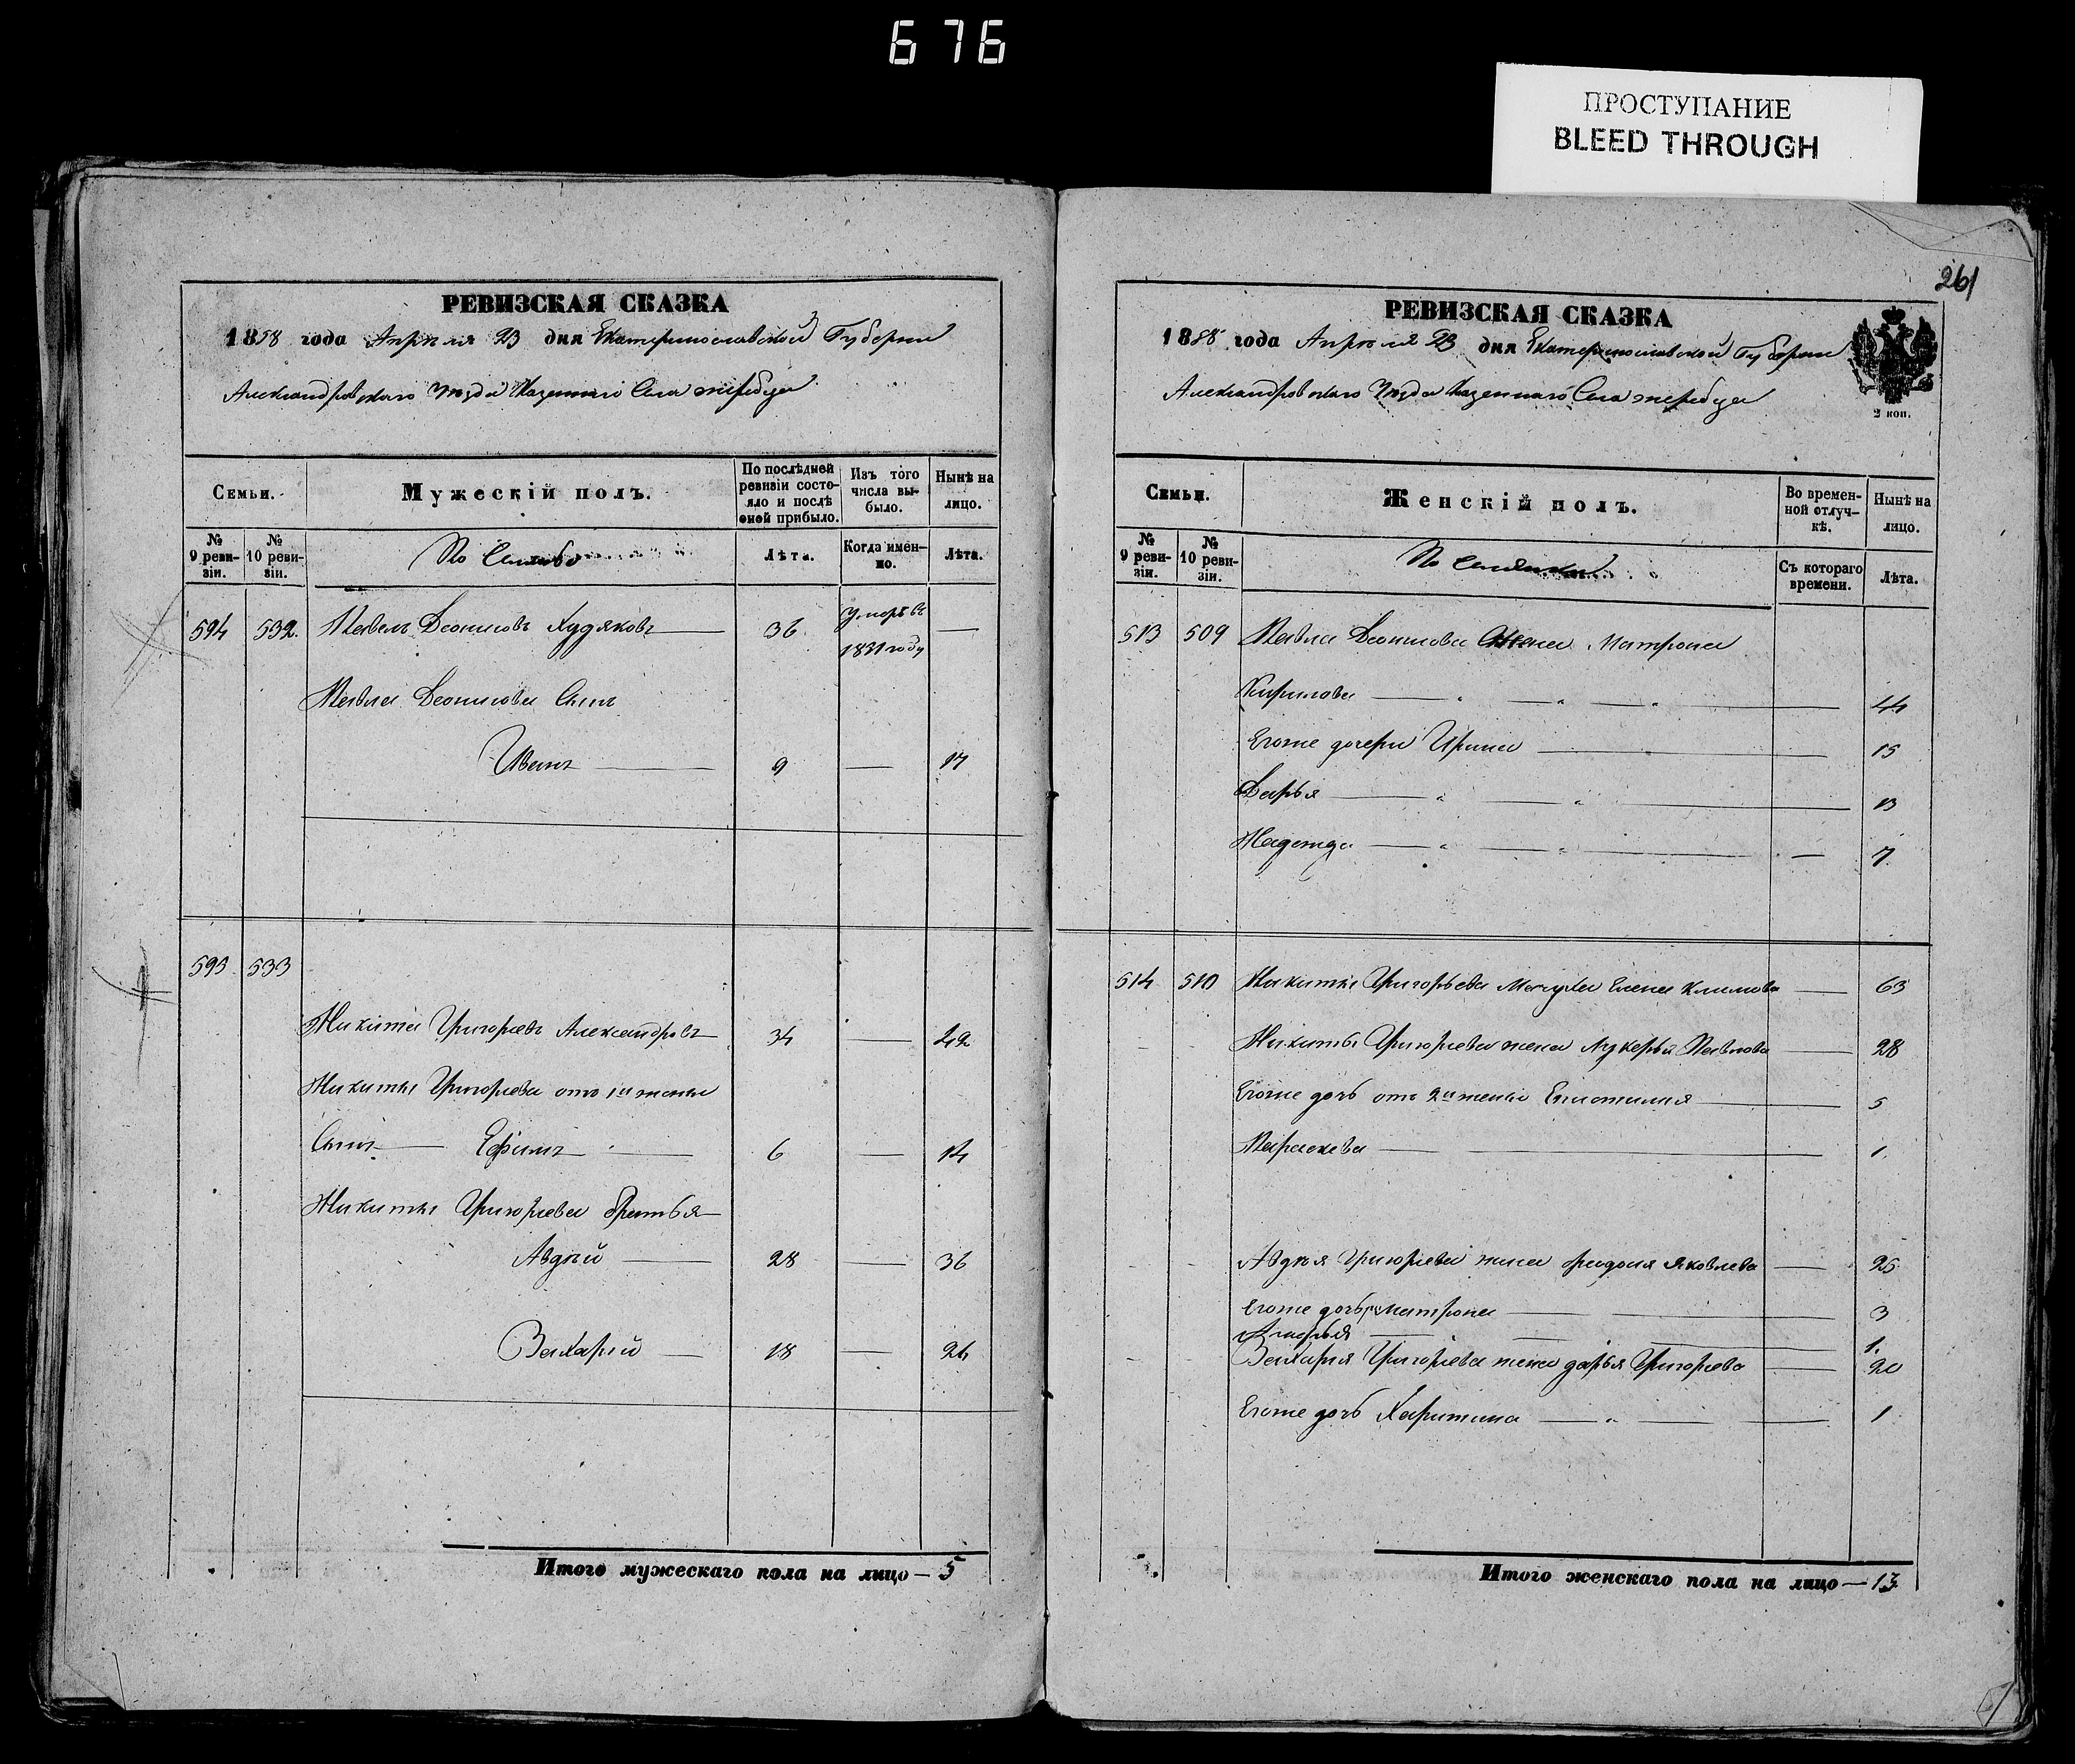 676
ПРОСТУПАНИЕ
BLEED THROUGH
РЕВИЗСКАЯ СКАЗКА
1858 года Апрѣля 23 дня Екатеринославской Губернии
Александровскаго Уѣзда Казеннаго Села Жеребца
Семьи.
Мужескій полъ.
По послѣдней ревизіи состояло и послѣ оной прибыло.
Изъ того числа выбыло.
Нынѣ на лицо.
№ 9 ревизіи.
№ 10 ревизіи.
Лѣта.
Когда именно.
Лѣта.
594 532. Павелъ Леонтовъ Худяковъ 36 умеръ въ 1831 году —
Павла сынъ
Иванъ — 9 — 17
595 533
Никита Григорьевъ Александровъ 34 — 42
Никиты Григорьева отъ 1й жены
Сынъ — Ефимъ — 6 — 14
Никиты Григорьева братья
Авдѣй — 28 — 36
Захарий — 18 — 26
Итого мужескаго пола на лицо — 5
261
РЕВИЗСКАЯ СКАЗКА
1858 года Апрѣля 23 дня Екатеринославской Губернии
Александровскаго Уѣзда Казеннаго Села Жеребца
2 коп.
Семьи.
Женскій полъ.
Во временной отлучкѣ.
Нынѣ на лицо.
№ 9 ревизіи.
№ 10 ревизіи.
Съ котораго времени.
Лѣта.
513 509 Павла жена Матрона
Кирилова — 44
Егоже дочери Ирина — 15
Дарья — 13
Надежда — 7
514 510 Никиты Григорьева Мачуха Елена Климова — 63
Никиты Григорьева жена Лукерья Павлова — 28
Егоже дочь отъ 2й жены 5
Параскева — 1
Авдѣя Григорьева жена Федосия Яковлева — 25
Егоже дочь Матрона — 3
Марья — 1.
Захария Григорьева жена дарья Григорьева — 20
Егоже дочь Харитина — 1
Итого женскаго пола на лицо — 13